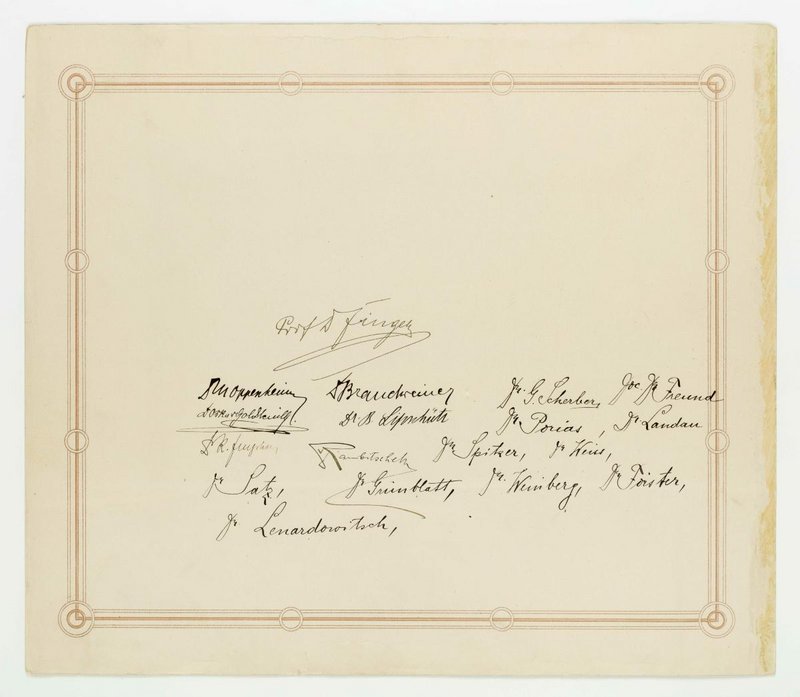 Prof Dr Finger
Dr M Oppenheim Dr Brandweiner Dr. G. Scherber, Doc Dr Freund
Dr Oskar Goldberg Dr B Lipschütz Dr Porias, Dr Landau
Dr R. Dr Spitzer, Dr Weiss,
Dr Satz, Dr Grünblatt, Dr Weinberg, Dr Foister,
Dr Lenardowitsch,